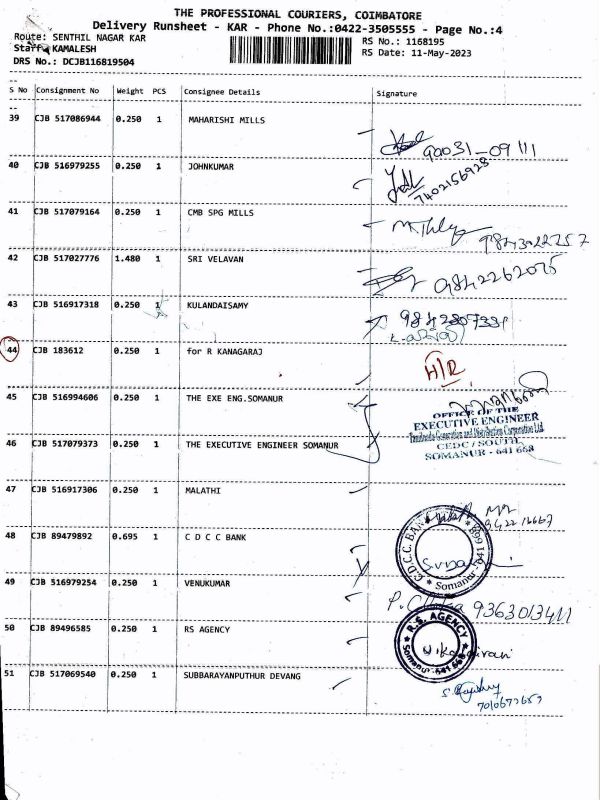 THE PROFESSIONAL COURIERS, COIMBATORE
Delivery Runsheet - KAR - Phone No.:0422-3505555 - Page No.:4
Route: SENTHIL NAGAR KAR
RS No.: 1168195
Staff: KAMALESH
RS Date: 11-May-2023
DRS No.: DCJB116819504
S No Consignment No Weight PCS Consignee Details Signature
39 CJB 517086944 0.250 1 MAHARISHI MILLS
90031-09111
40 CJB 516979255 0.250 1 JOHNKUMAR
7402156928
41 CJB 517079164 0.250 1 CMB SPG MILLS
9843022257
42 CJB 517027776 1.480 1 SRI VELAVAN
9842262075
43 CJB 516917318 0.250 1 KULANDAISAMY
44 CJB 183612 0.250 1 for R KANAGARAJ
H/R
45 CJB 516994606 0.250 1 THE EXE ENG.SOMANUR
OFFICE OF THE
EXECUTIVE ENGINEER
Tamilnadu Generation and Distribution Corporation Ltd
CEDC / SOUTH
SOMANUR - 641 668
46 CJB 517079373 0.250 1 THE EXECUTIVE ENGINEER SOMANUR
47 CJB 516917306 0.250 1 MALATHI
48 CJB 89479892 0.695 1 C D C C BANK
C.D.C.C. BANK
Somanur-641668
49 CJB 516979254 0.250 1 VENUKUMAR
9363013411
50 CJB 89496585 0.250 1 RS AGENCY
R.S. AGENCY
Somanur 641 668
51 CJB 517069540 0.250 1 SUBBARAYANPUTHUR DEVANG